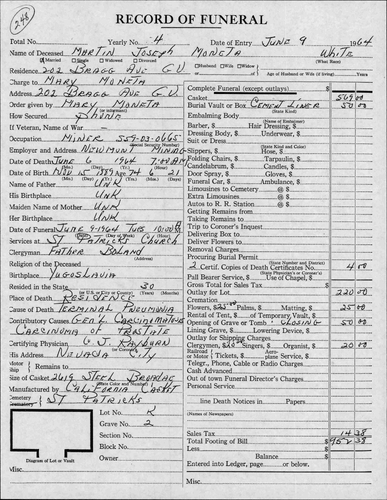 248
RECORD OF FUNERAL
Total No. Yearly No. 4 Date of Entry JUNE 9 1964
Name of Deceased MARTIN JOSEPH MONETA WHITE
Married Single Widowed Divorced Husband Widow (What Race)
Residence 202 BRAGG AVE G.V. or Age of Husband or Wife (if living) Years
Charge to MARY MONETA
Address 202 BRAGG AVE G.V.
Order given by MARY MONETA
How Secured Phone
If Veteran, Name of War
Occupation MINER 559-03-0665
Employer and Address NEWMONT MINING
Date of Death JUNE 6 1964 7:00 AM
Date of Birth NOV 15 1889 Age 74 6 21
Name of Father UNK
His Birthplace UNK
Maiden Name of Mother UNK
Her Birthplace UNK
Date of Funeral JUNE 9-1964 TUES 10:00 AM
Services at ST PATRICKS CHURCH
Clergyman FATHER BOLAND
Religion of the Deceased
Birthplace YUGOSLAVIA
Resided in the State 30 (Months)
Place of Death RESIDENCE
Cause of Death TERMINAL PNEUMONIA
Contributory Causes GEN'L CARCINOMATOSIS
CARCINOMA OF PROSTATE
Certifying Physician
His Address NEVADA CITY
Motor
Ship Remains to
Size of Casket 2619 STEEL
Manufactured by CALIFORNIA CASKET
Cemetery ST PATRICKS
Lot No. K
Grave No. 2
Section No.
Block No.
Owner
Diagram of Lot or Vault
Misc.
Complete Funeral (except outlays) $
Casket 569 00
Burial Vault or Box CEMENT LINER 50 00
(State Kind)
Embalming Body
(Name of Embalmer)
Barber, $ Hair Dressing, $
Dressing Body, $ Underwear, $
Suit or Dress
(State Kind and Color)
Slippers, $ Hose, $
Folding Chairs, $ Tarpaulin, $
Candelabrum, $ Candles, $
Door Spray, $ Gloves, $
Funeral Car, $ Ambulance, $
Limousines to Cemetery @ $
Extra Limousines @ $
Autos to R. R. Station @ $
Getting Remains from
Taking Remains to
Trip to Coroner's Inquest
Delivering Box to
Deliver Flowers to
Removal Charges
Procuring Burial Permit
(State Number and District)
2 Certif. Copies of Death Certificates No. 4 00
(State Physician's or Coroner's)
Pall Bearer Service, $ Use of Chapel, $
Gross Total for Sales Tax $
Outlay for Lot 220 00
Cremation
Flowers, $25.00 Palms, $ Matting, $ 25 00
Rental of Tent, $ of Temporary Vault, $
Opening of Grave or Tomb & CLOSING 50 00
Lining Grave, $ Lowering Device, $
Outlay for Shipping Charges
Clergymen, $20.00 Singers, $ Organist, $ 20 00
Railroad or Motor Tickets, $ Aeroplane Service, $
Telegr., Phone, Cable or Radio Charges
Cash Advanced
Out of town Funeral Director's Charges
Personal Service
line Death Notices in Papers
(Names of Newspapers)
Sales Tax 14 38
Total Footing of Bill $952 38
Less
Balance $
Entered into Ledger, page or below.
Misc.